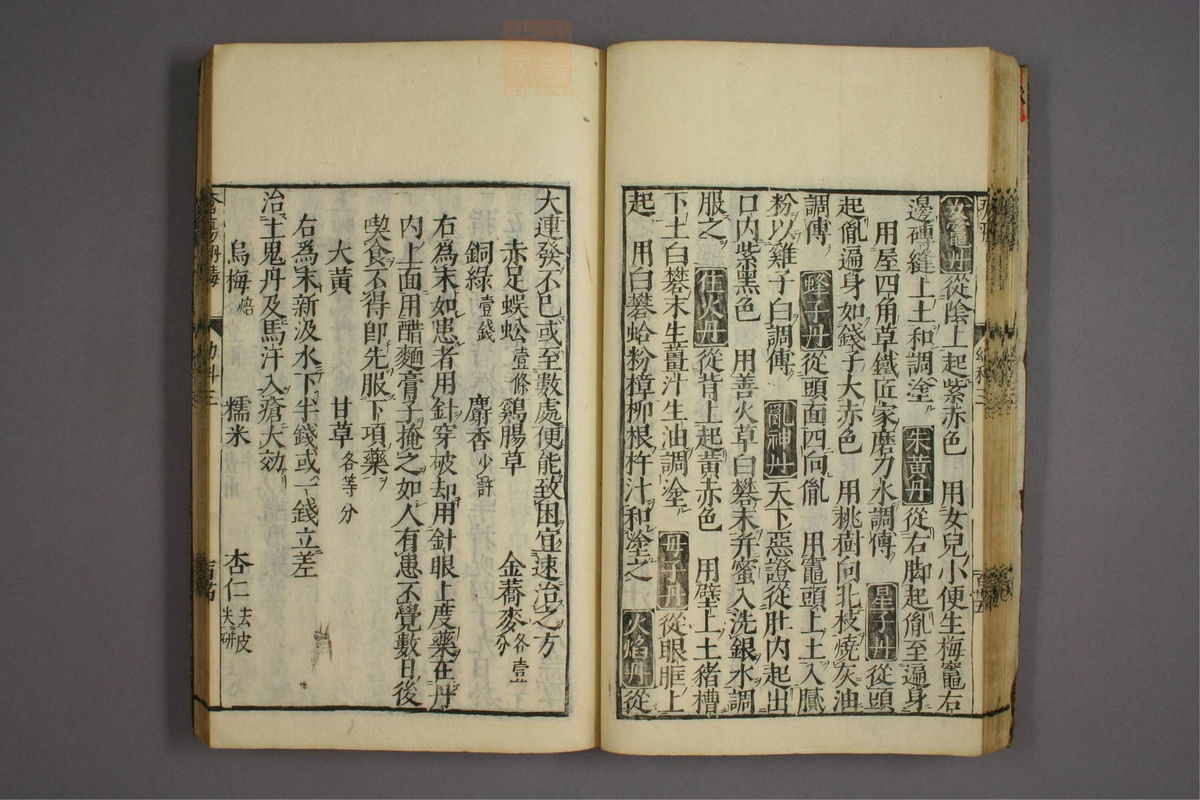 女竈丹從陰上起紫赤色　用女兒小便生梅竈右
邊磚縫上土和調塗　朱黄丹從右脚起亂至遍身
用屋四角草鐵匠家磨刀水調傅　星子丹從頭
起亂遍身如錢子大赤色　用桃樹向北枝燒灰油
調傅　蜂子丹從頭面四向亂　用竈頭上土入膩
粉以雞子白調傅　亂神丹天下惡證從肚内起出
口内紫黑色　用善火草白礬末并蜜入洗銀水調
服之　住火丹從背上起黄赤色　用壁上土豬槽
下土白礬末生薑汁生油調塗　母子丹從眼眶上
起　用白礬蛤粉樟柳根杵汁和塗之　火焰丹從
大連發不已或至數處便能致困宜速治之方
赤足蜈蚣壹條　鷄腸草　金蕎麥各壹分
銅綠壹錢　麝香少許
右爲末如患者用針穿破却用針眼上度藥在丹
内上面用醋麵膏子掩之如人有患不覺數日後
喫食不得卽先服下項藥
大黄　甘草各等分
右爲末新汲水下半錢或一錢立差
治土鬼丹及馬汗入瘡大効
烏梅焙　糯米　杏仁去皮尖研